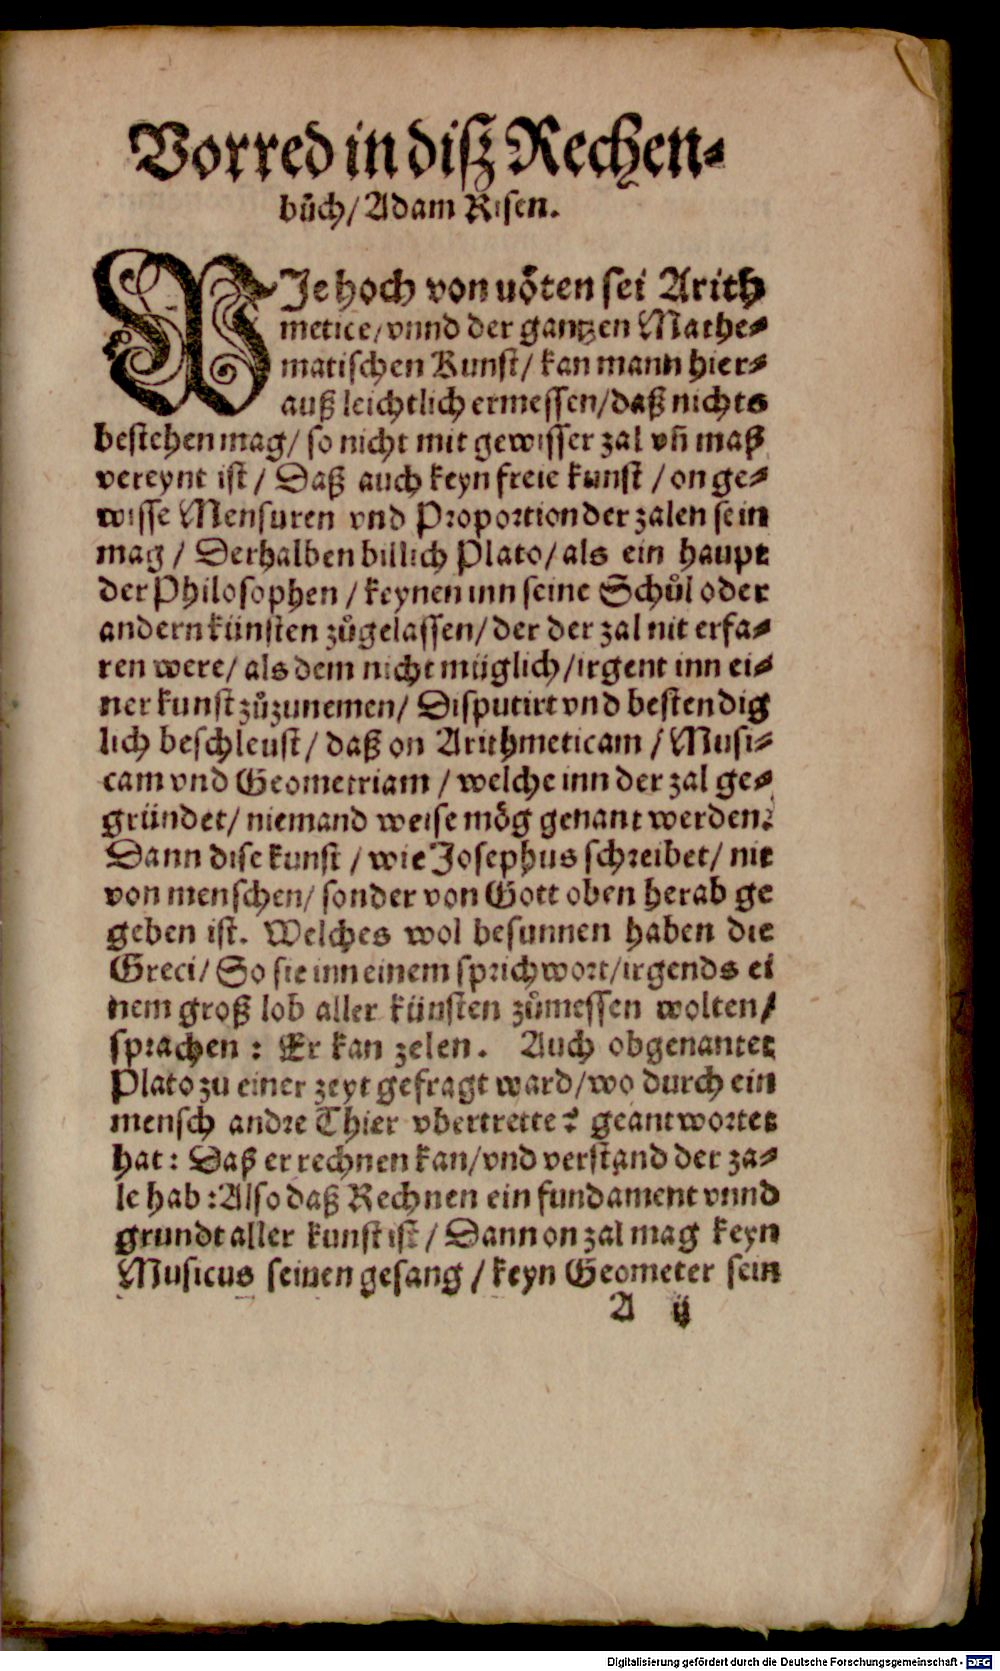 Vorred in diſz Rechen⸗
bůch/ Adam Risen.
WJe hoch von uöten sei Arith
metice/ vnnd der gantzen Mathe⸗
matischen Kunst/ kan mann hier⸗
auß leichtlich ermessen/ daß nichts
bestehen mag/ so nicht mit gewisser zal vñ maß
vereynt ist / Daß auch keyn freie kunst / on ge⸗
wisse Mensuren vnd Proportion der zalen sein
mag / Derhalben billich Plato/ als ein haupt
der Philosophen / keynen inn seine Schůl oder
andern künsten zůgelassen/ der der zal nit erfa⸗
ren were/ als dem nicht müglich/ irgent inn ei⸗
ner kunst zůzunemen/ Disputirt vnd bestendig
lich beschleust/ daß on Arithmeticam / Musi⸗
cam vnd Geometriam / welche inn der zal ge⸗
gründet/ niemand weise mög genant werden.
Dann dise kunst / wie Josephus schreibet/ nit
von menschen/ sonder von Gott oben herab ge
geben ist. Welches wol besunnen haben die
Greci/ So sie inn einem sprichwort/ irgends ei
nem groß lob aller künsten zůmessen wolten/
sprachen : Er kan zelen. Auch obgenanter
Plato zu einer zeyt gefragt ward/ wo durch ein
mensch andre Thier vbertrette? geantwortet
hat : Daß er rechnen kan/ vnd verstand der za⸗
le hab : Also daß Rechnen ein fundament vnnd
grundt aller kunst ist / Dann on zal mag keyn
Musicus seinen gesang / keyn Geometer sein
A ij
Digitalisierung gefördert durch die Deutsche Forschungsgemeinschaft - DFG